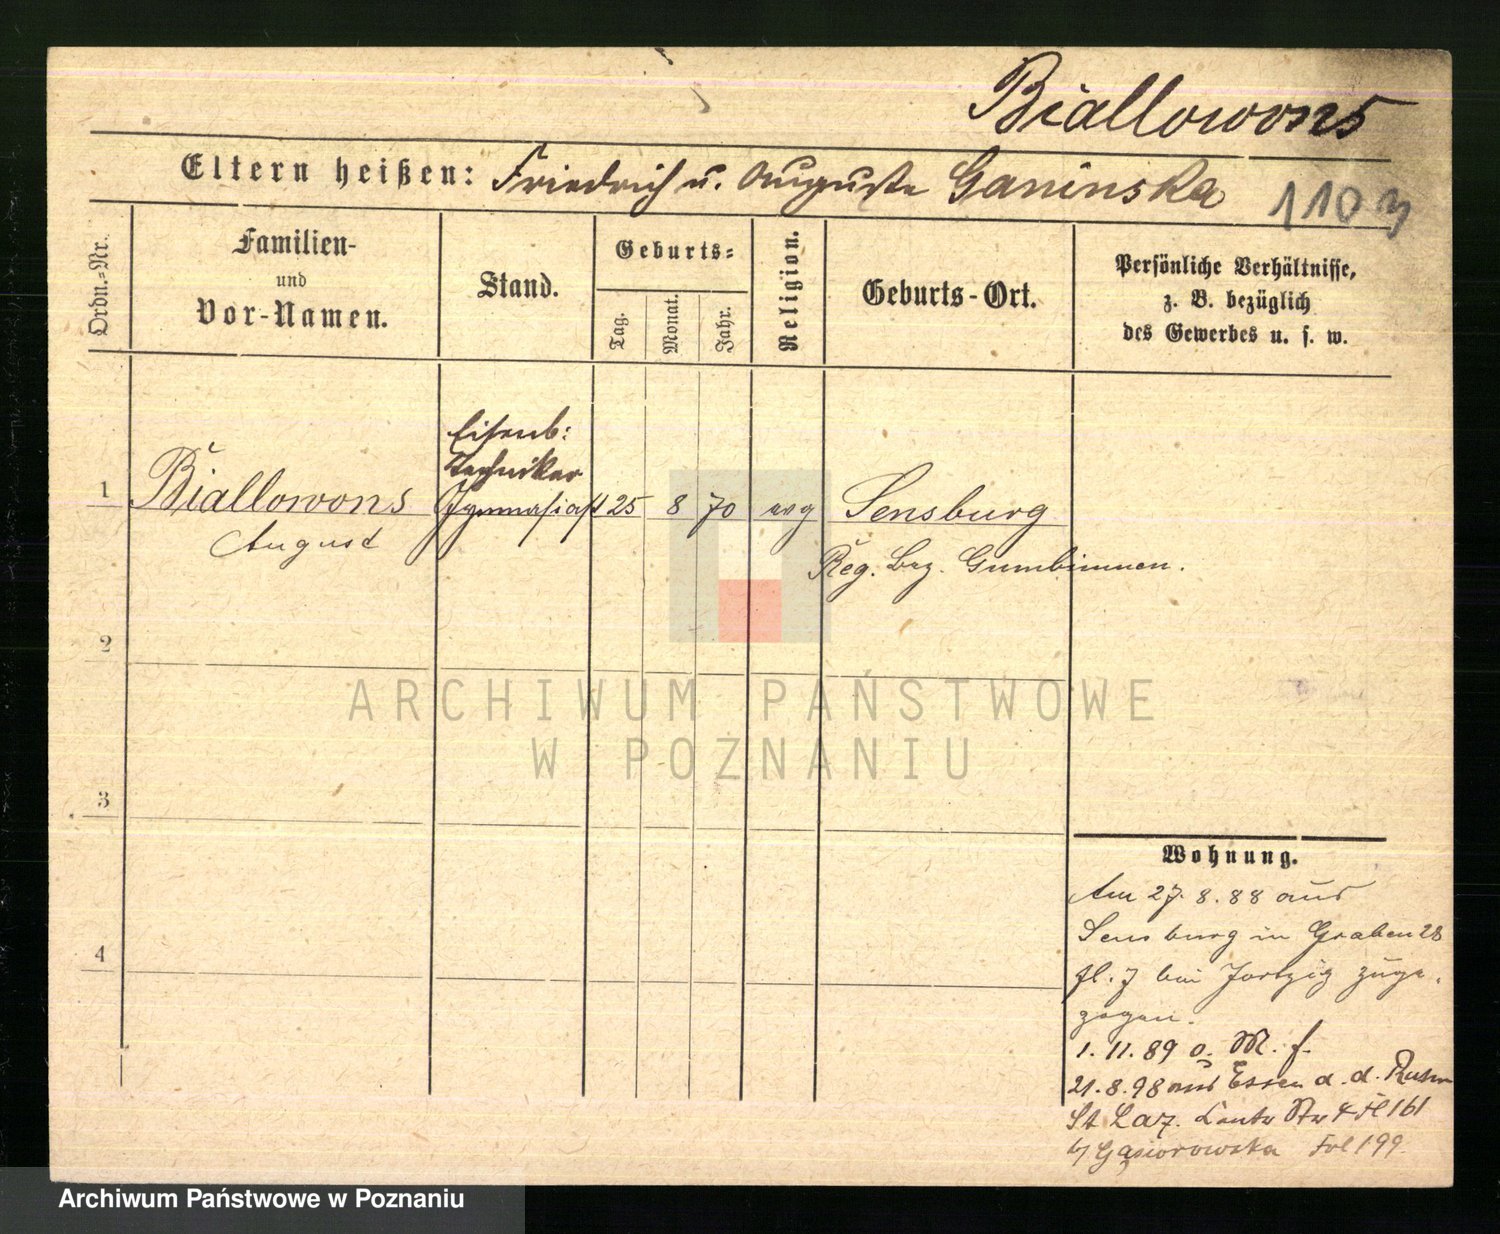 Biallowons
Eltern heißen: Friedrich u. Auguste Ganinska
110
Ordn.=Nr.
Familien-
und
Vor-Namen.
Stand.
Geburts=
Tag.
Monat.
Jahr.
Religion.
Geburts-Ort.
Persönliche Verhältnisse,
z. B. bezüglich
des Gewerbes u. s. w.
Eisenb:
Techniker
1 Biallowons Gymnasiast 25 8 70 evg Sensburg
August
Reg. Bez. Gumbinnen.
2
3
4
Wohnung.
Am 27.8.88 aus
Sensburg in Graben 28
bei zuge
zogen.
1.11.89 o. M. f.
21.8.98 aus Essen a. d. Ruhr
St Laz. Str 4
b/ Gąsiorowska Fol 199.
ARCHIWUM PAŃSTWOWE
W POZNANIU
Archiwum Państwowe w Poznaniu